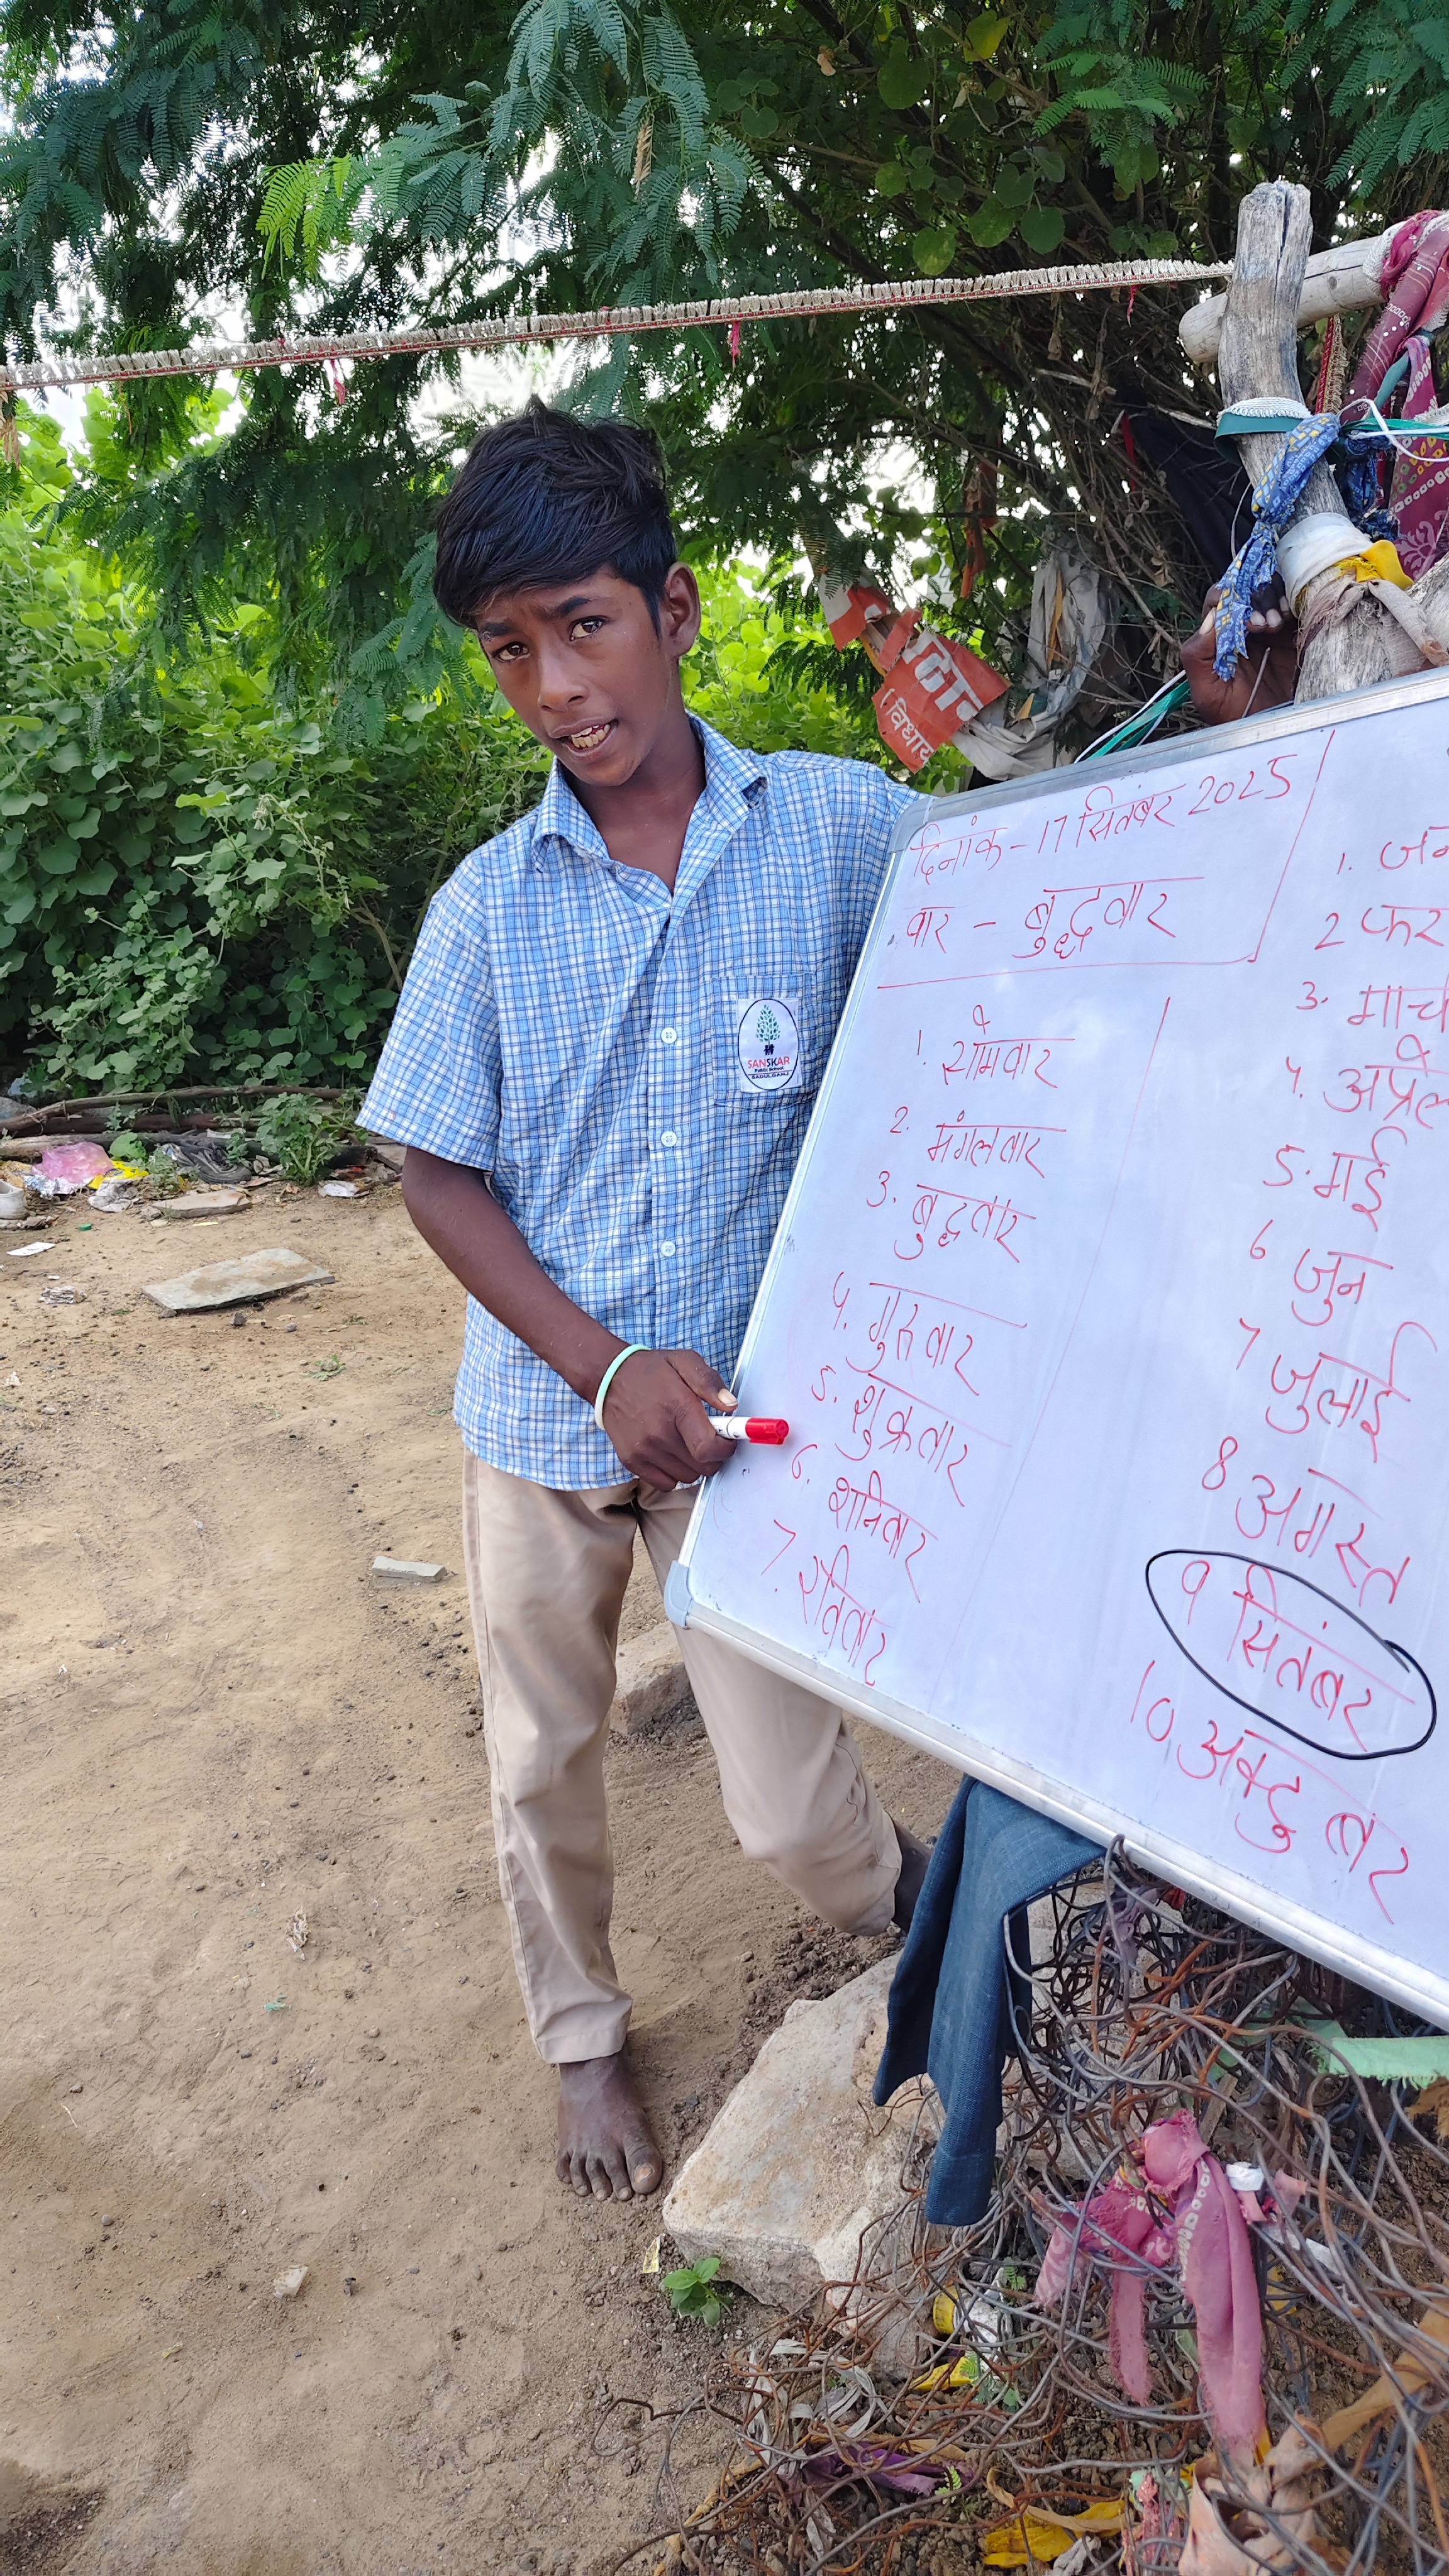 दिनांक - 17 सितंबर 2025
वार - बुद्धवार
1. सोमवार
2. मंगलवार
3. बुद्धवार
4. गुरुवार
5. शुक्रवार
6. शनिवार
7. रविवार
1. जन
2 फर
3. मार्च
4. अप्रेल
5. मई
6 जुन
7 जुलाई
8 अगस्त
9 सितंबर
10 अक्टुबर
SANSKAR
Public School
SADULGANJ